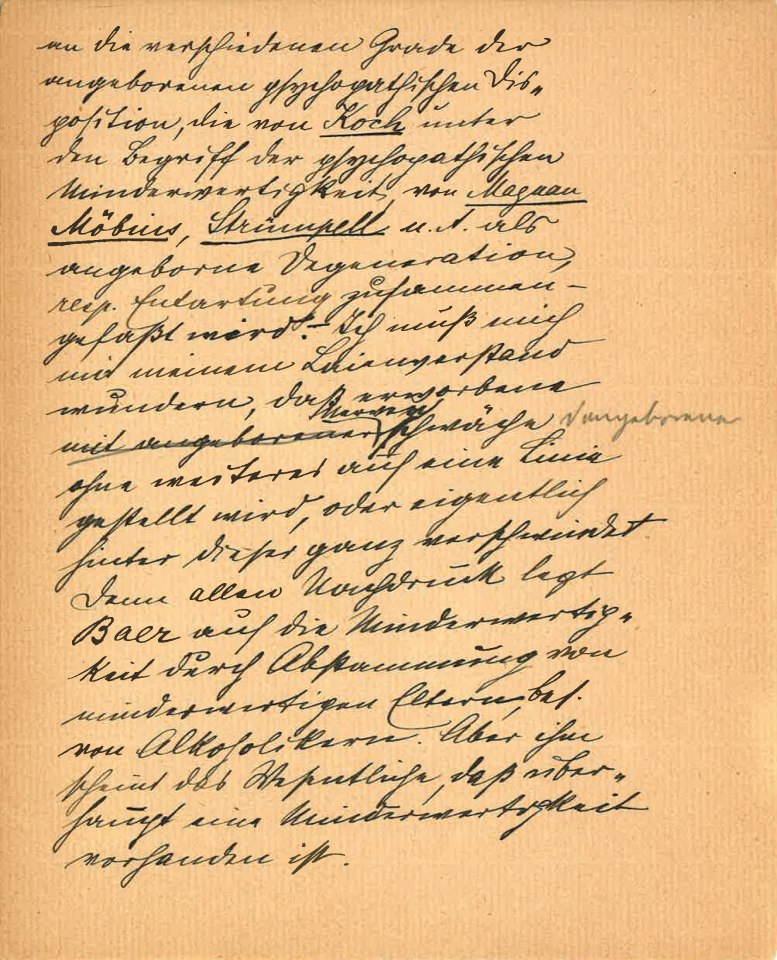 an die verschiedenen Grade der
angeborenen psychopathischen Dis„
position, die von Koch unter
den Begriff der psychopathischen
Minderwertigkeit, von Magnan
Möbius, Strümpell u. A. als
angeborne Degeneration,
resp. Entartung zusammen-
gefaßt wird. – Ich muß mich
mit meinem Laienverstand
wundern, daß erworbene
Nerven
mit angeborener schwäche angeborener
ohne weiteres auf eine Linie
gestellt wird, oder eigentlich
hinter dieser ganz verschwindet.
Denn allen Nachdruck legt
Baer auf die Minderwertig„
keit durch Abstammung von
minderwertigen Eltern, bes.
von Alkoholikern. Aber ihm
scheint das Wesentliche, daß über„
haupt eine Minderwertigkeit
vorhanden ist.